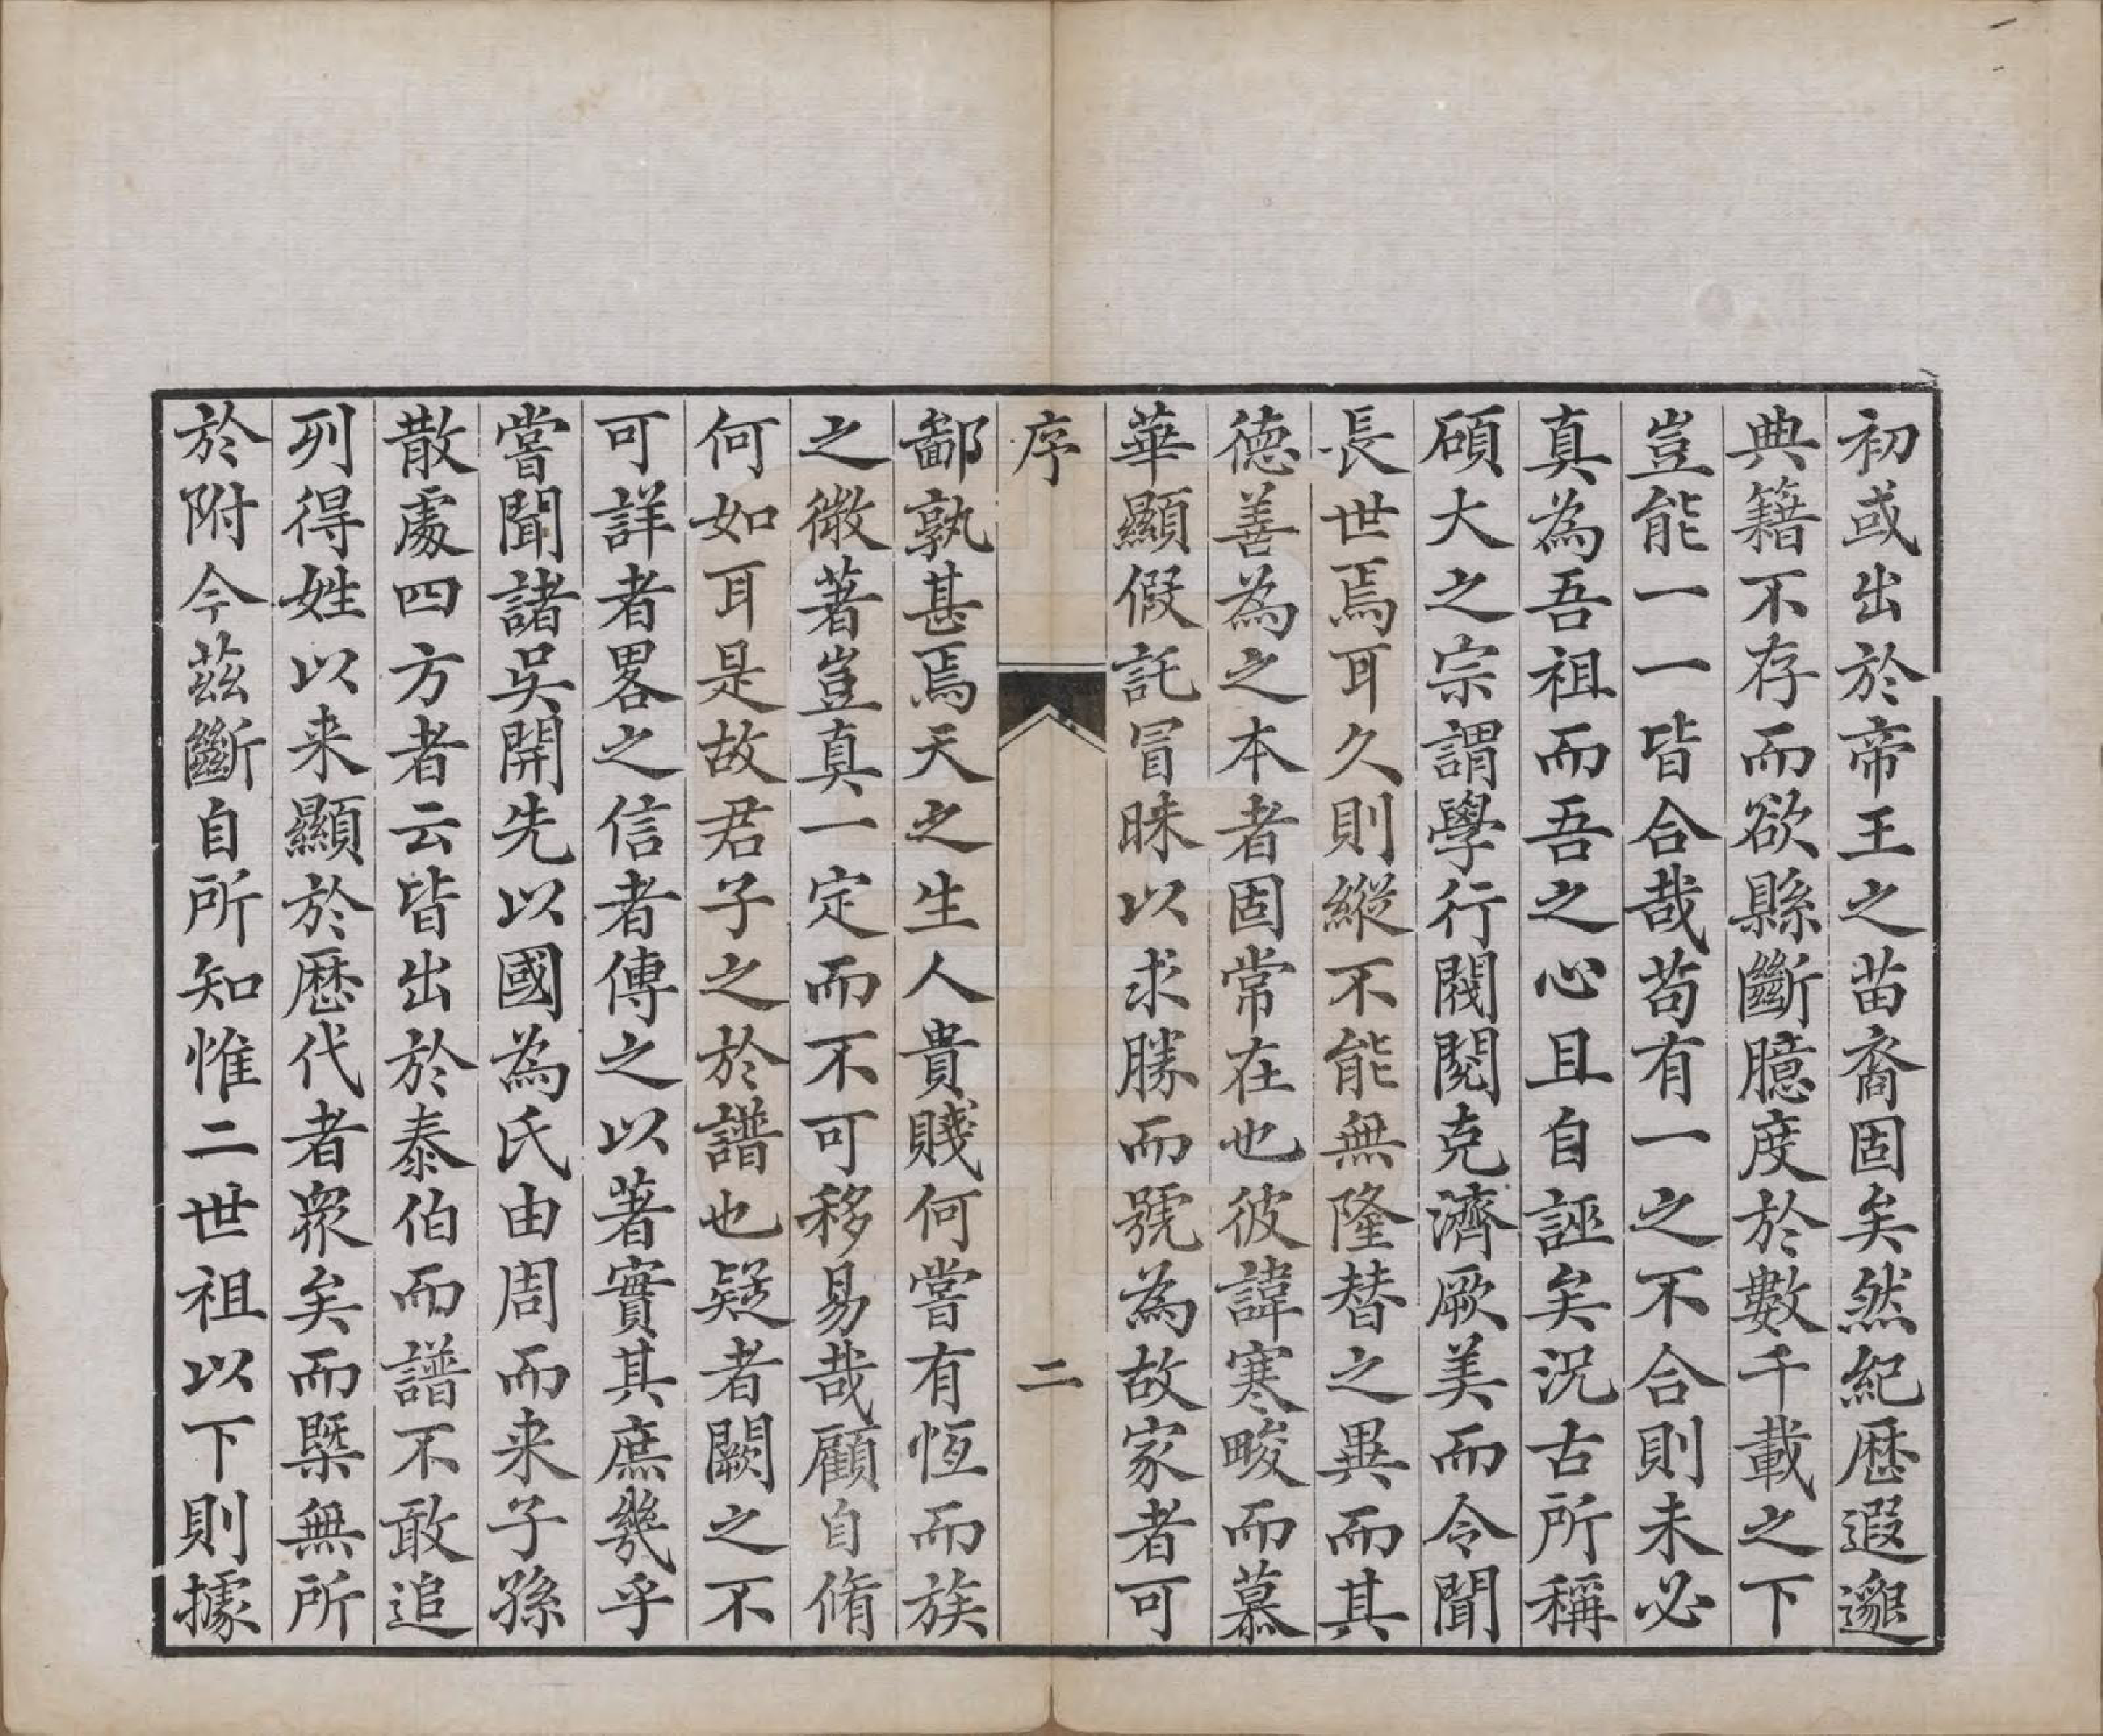 初或出於帝王之苗裔固矣然紀歷遐邈
典籍不存而欲縣斷臆度於數千載之下
豈能一一皆合哉苟有一之不合則未必
真為吾祖而吾之心且自誣矣況古所稱
碩大之宗謂學行閥閱克濟厥美而令聞
長世焉耳久則縱不能無隆替之異而其
德善為之本者固常在也彼諱寒畯而慕
華顯假託冒昧以求勝而號為故家者可
序
二
鄙孰甚焉天之生人貴賤何嘗有恆而族
之微著豈真一定而不可移易哉顧自脩
何如耳是故君子之於譜也疑者闕之不
可詳者畧之信者傳之以著實其庶幾乎
嘗聞諸吳開先以國為氏由周而来子孫
散處四方者云皆出於泰伯而譜不敢追
列得姓以来顯於歷代者衆矣而槩無所
於附今茲斷自所知惟二世祖以下則據